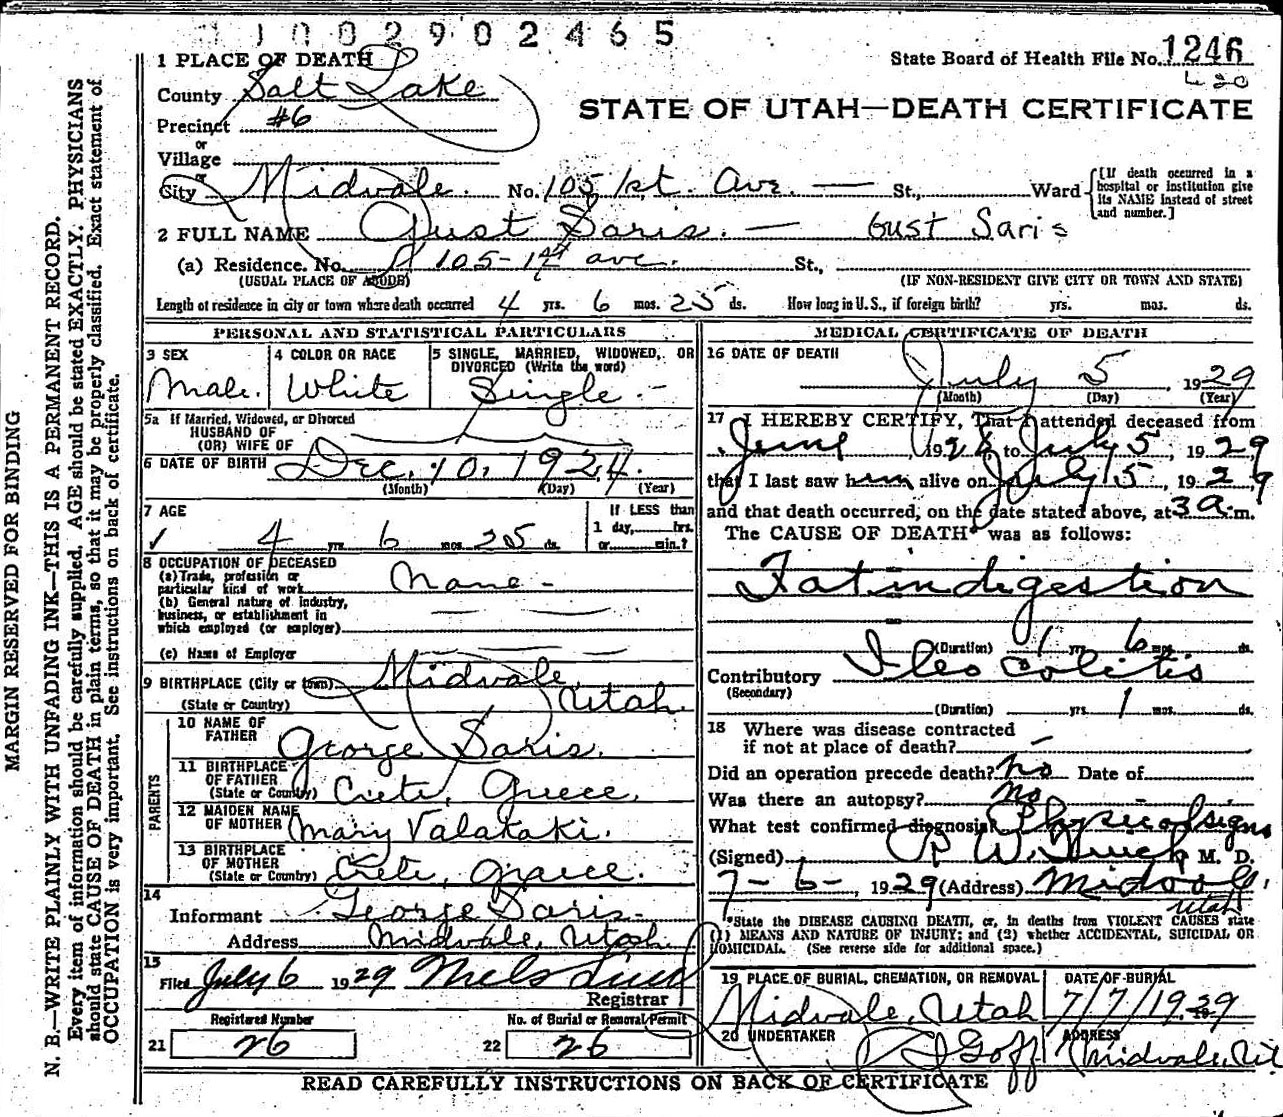 1 0 0 2 9 0 2 4 6 5
1 PLACE OF DEATH
State Board of Health File No. 1246
420
County Salt Lake
STATE OF UTAH—DEATH CERTIFICATE
Precinct #6
or
Village
or
City Midvale. No. 105 1st. Ave. — St, Ward
[If death occurred in a hospital or institution give its NAME instead of street and number.]
2 FULL NAME Gust Saris. — Gust Saris
(a) Residence. No. 105-1st ave. St.,
(USUAL PLACE OF ABODE) (IF NON-RESIDENT GIVE CITY OR TOWN AND STATE)
Length of residence in city or town where death occurred 4 yrs. 6 mos. 25 ds. How long in U.S., if foreign birth? yrs. mos. ds.
PERSONAL AND STATISTICAL PARTICULARS
3 SEX
Male.
4 COLOR OR RACE
White
5 SINGLE, MARRIED, WIDOWED, OR DIVORCED (Write the word)
Single.-
5a If Married, Widowed, or Divorced
HUSBAND OF
(OR) WIFE OF
6 DATE OF BIRTH Dec. 10. 1924.
(Month) (Day) (Year)
7 AGE
4 yrs. 6 mos. 25 ds.
If LESS than
1 day, hrs.
or min.?
8 OCCUPATION OF DECEASED
(a) Trade, profession or
particular kind of work None -
(b) General nature of industry,
business, or establishment in
which employed (or employer)
(c) Name of Employer
9 BIRTHPLACE (City or town) Midvale,
(State or Country) Utah.
PARENTS
10 NAME OF
FATHER George Saris.
11 BIRTHPLACE
OF FATHER
(State or Country) Crete, Greece.
12 MAIDEN NAME
OF MOTHER Mary Valakaki.
13 BIRTHPLACE
OF MOTHER
(State or Country) Crete, Greece.
14
Informant George Saris-
Address Midvale, Utah.
15
Filed July 6 1929
Registrar
Registered Number No. of Burial or Removal Permit
21 26 22 26
MEDICAL CERTIFICATE OF DEATH
16 DATE OF DEATH
July 5, 1929
(Month) (Day) (Year)
17 I HEREBY CERTIFY, That I attended deceased from
June, 1928 to July 5, 1929
that I last saw him alive on July 5, 1929
and that death occurred, on the date stated above, at 3 a. m.
The CAUSE OF DEATH* was as follows:
Fat indigestion
(Duration) 1 yrs 6 mos. ds.
Contributory Ileo colitis
(Secondary)
(Duration) yrs. 1 mos. ds.
18 Where was disease contracted
if not at place of death? —
Did an operation precede death? no Date of
Was there an autopsy? no
What test confirmed diagnosis Physical signs
(Signed) M. D.
7-6-, 1929 (Address) Midvale,
Utah
*State the DISEASE CAUSING DEATH, or, in deaths from VIOLENT CAUSES state
(1) MEANS AND NATURE OF INJURY; and (2) whether ACCIDENTAL, SUICIDAL OR
HOMICIDAL. (See reverse side for additional space.)
19 PLACE OF BURIAL, CREMATION, OR REMOVAL
Midvale, Utah
DATE OF BURIAL
7/7/1929
20 UNDERTAKER
Goff
ADDRESS
Midvale, Ut
READ CAREFULLY INSTRUCTIONS ON BACK OF CERTIFICATE
MARGIN RESERVED FOR BINDING
N. B.—WRITE PLAINLY WITH UNFADING INK—THIS IS A PERMANENT RECORD.
Every item of information should be carefully supplied. AGE should be stated EXACTLY. PHYSICIANS
should state CAUSE OF DEATH in plain terms, so that it may be properly classified. Exact statement of
OCCUPATION is very important. See instructions on back of certificate.